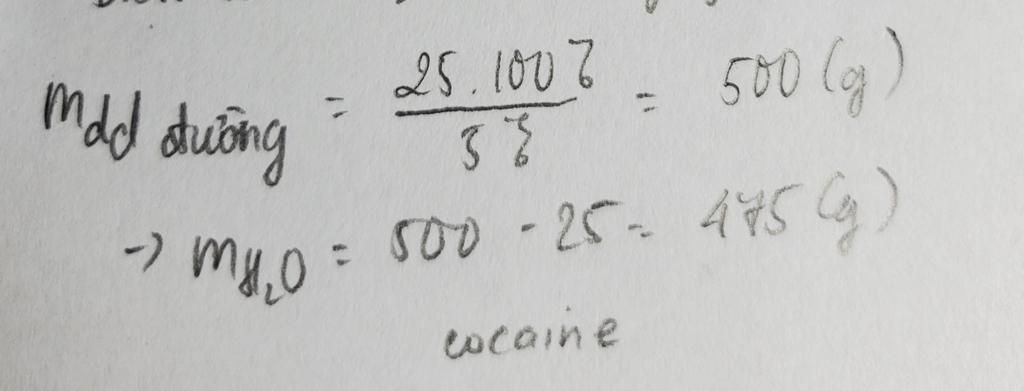 mdd đường = 25.100% / 5% = 500 (g)
-> mH₂O = 500 - 25 = 475 (g)
cocaine